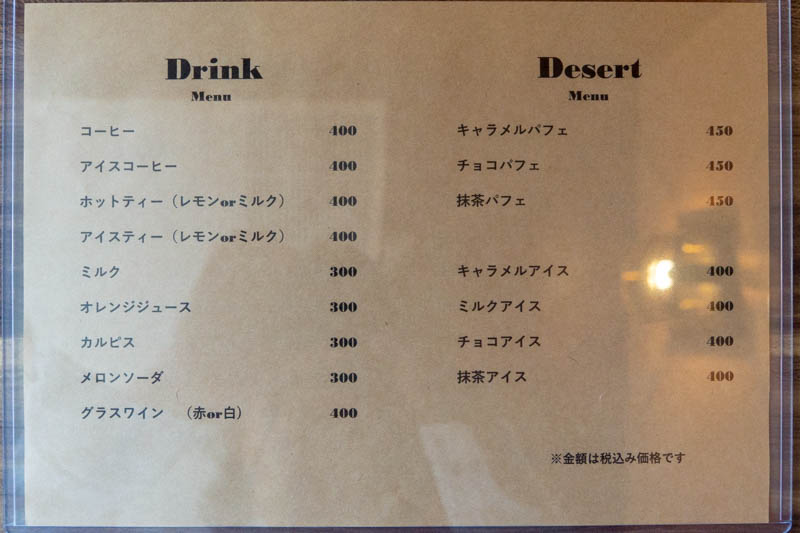 Drink
Menu
コーヒー 400
アイスコーヒー 400
ホットティー（レモンorミルク） 400
アイスティー（レモンorミルク） 400
ミルク 300
オレンジジュース 300
カルピス 300
メロンソーダ 300
グラスワイン （赤or白） 400
Desert
Menu
キャラメルパフェ 450
チョコパフェ 450
抹茶パフェ 450
キャラメルアイス 400
ミルクアイス 400
チョコアイス 400
抹茶アイス 400
※金額は税込み価格です